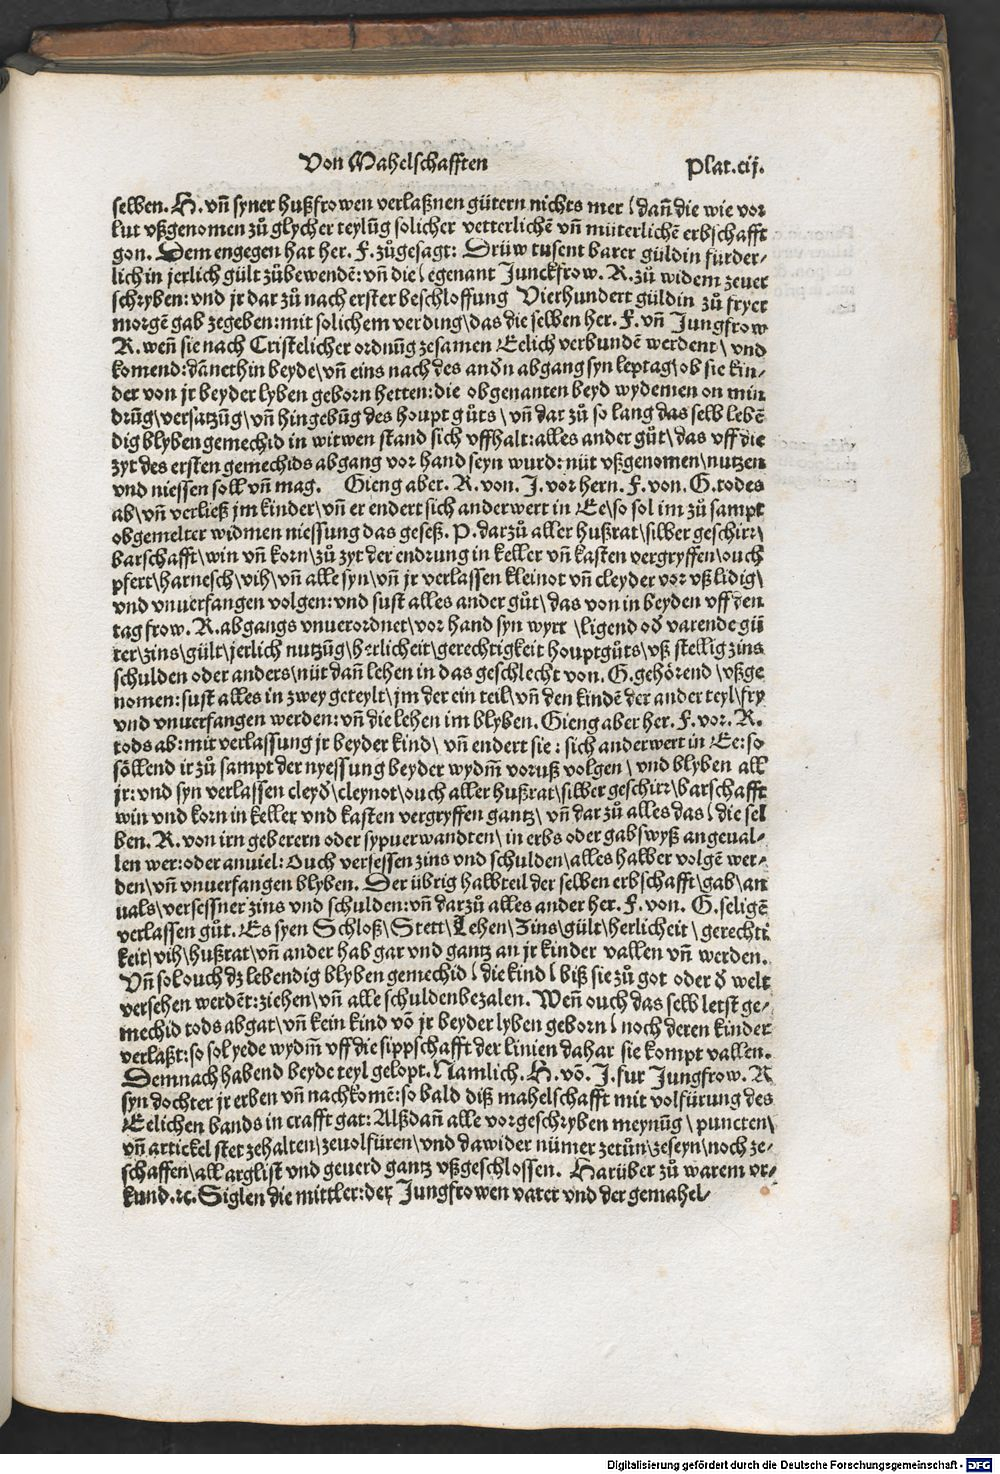 Von Mahelschafften
Plat.cij.
selben. H. vn̄ syner hußfrowen verlaßnen gütern nichts mer / dan̄ die wie vor
lut vßgenomen zů glycher teylūg solicher vetterlichē vn̄ mütterlichē erbschafft
gon. Dem engegen hat her. F. zůgesagt: Drüw tusent barer güldin fürder⸗
lich in jerlich gült zübewendē: vn̄ die / egenant Junckfrow. R. zů widem zeuer
schryben: vnd jr dar zů nach erster beschloffung Vierhundert güldin zů fryer
morgē gab zegeben: mit solichem verding\ das die selben her. F. vn̄ Jungfrow
R. wen̄ sie nach Cristelicher ordnūg zesamen Eelich verbundē werdent\ vnd
komend: dānethin beyde\ vn̄ eins nach des andn̄ abgang syn leptag\ ob sie kin⸗
der von jr beyder lyben geborn hetten: die obgenanten beyd wydemen on min
drūg\ versatzūg\ vn̄ hingebūg des houpt gůts\ vn̄ dar zů so lang das selb lebē
dig blyben gemechid in witwen stand sich vffhalt: alles ander gůt\ das vff die
zyt des ersten gemechids abgang vor hand seyn wurd: nüt vßgenomen\ nutzen
vnd niessen soll vn̄ mag. Gieng aber. R. von. J. vor hern. F. von. G. todes
ab\ vn̄ verließ jm kinder\ vn̄ er endert sich anderwert in Ee\ so sol im zů sampt
obgemelter widmen niessung das geseß. P. darzů aller hußrat\ silber geschirr\
barschafft\ win vn̄ korn\ zů zyt der endrung in keller vn̄ kasten vergryffen\ ouch
pfert\ harnesch\ vih\ vn̄ alle syn\ vn̄ jr verlassen kleinot vn̄ cleyder vor vß lidig\
vnd vnuerfangen volgen: vnd sust alles ander gůt\ das von in beyden vff den
tag frow. R. abgangs vnuerordnet\ vor hand syn wyrt \ ligend od̕ varende gü
ter\ zins\ gült\ jerlich nutzūg\ herlicheit\ gerechtigkeit houptgůts\ vß stellig zins
schulden oder anders\ nüt dan̄ lehen in das geschlecht von. G. gehörend\ vßge
nomen: sust alles in zwey geteylt\ jm der ein teil\ vn̄ den kindē der ander teyl\ fry
vnd vnuerfangen werden: vn̄ die lehen im blyben. Gieng aber her. F. vor. R.
tods ab: mit verlassung jr beyder kind\ vn̄ endert sie: sich anderwert in Ee: so
söllend ir zů sampt der nyessung beyder wydm̄ voruß volgen\ vnd blyben all
jr: vnd syn verlassen cleyd̕\ cleynot\ ouch aller hußrat\ silber geschirr\ barschafft
win vnd korn in keller vnd kasten vergryffen gantz\ vn̄ dar zů alles das / die sel
ben. R. von irn geberern oder sypuerwandten\ in erbs oder gabswyß angeual⸗
len wer: oder anuiel: Ouch versessen zins vnd schulden\ alles halber volgē wer⸗
den\ vn̄ vnuerfangen blyben. Der übrig halbteil der selben erbschafft\ gab\ an
uals\ versessner zins vnd schulden: vn̄ darzů alles ander her. F. von. G. seligē
verlassen gůt. Es syen Schloß\ Stett\ Lehen\ Zins\ gült\ herlicheit\ gerechti
keit\ vih\ hußrat\ vn̄ ander hab gar vnd gantz an jr kinder vallen vn̄ werden.
Vn̄ sol ouch dz lebendig blyben gemechid / die kind / biß sie zů got oder d̕ welt
versehen werdēt: ziehen\ vn̄ alle schulden bezalen. Wen̄ ouch das selb letst ge⸗
mechid tods abgat\ vn̄ kein kind vō jr beyder lyben geborn / noch deren kinder
verlaßt: so sol yede wydm̄ vff die sippschafft der linien dahar sie kompt vallen.
Demnach habend beyde teyl gelopt. Namlich. H. vō. J. fur Jungfrow. R
syn dochter jr erben vn̄ nachkomē: so bald diß mahelschafft mit volfürung des
Eelichen bands in crafft gat: Alßdan̄ alle vorgeschryben meynūg\ puncten\
vn̄ artickel stet zehalten\ zeuolfüren\ vnd dawider nümer zetůn\ zeseyn\ noch ze⸗
schaffen\ all arglist vnd geuerd gantz vßgeschlossen. Harüber zů warem vr⸗
kund. ꝛc. Siglen die mittler: der Jungfrowen vater vnd der gemahel⸗
Digitalisierung gefördert durch die Deutsche Forschungsgemeinschaft - DFG